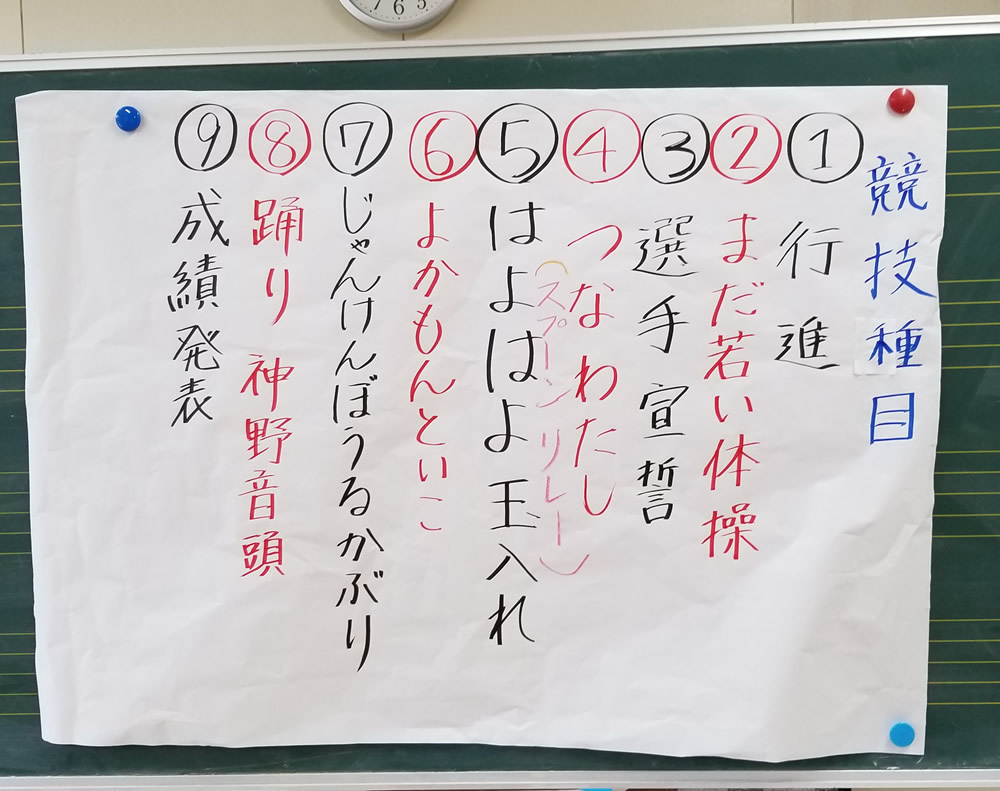 競技種目
① 行進
② まだ若い体操
③ 選手宣誓
④ つなわたし
(スプーンリレー)
⑤ はよはよ玉入れ
⑥ よかもんといこ
⑦ じゃんけんぼうるかぶり
⑧ 踊り 神野音頭
⑨ 成績発表
7 6 5